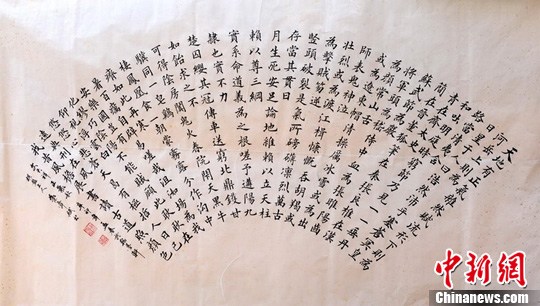 天地有正氣雜然賦流形下則為
河嶽上則為
日星於人曰浩然沛乎塞蒼冥皇
路當清夷含
和吐明庭時窮節乃見一一垂丹
青在齊太史
簡在晉董狐筆在秦張良椎在漢
蘇武節為嚴
將軍頭為嵇侍中血為張睢陽齒
為顏常山舌
或為遼東帽清操厲冰雪或為出
師表鬼神泣
壯烈或為渡江楫慷慨吞胡羯或
為擊賊笏逆
豎頭破裂是氣所磅礴凜烈萬古
存當其貫日
月生死安足論地維賴以立天柱
賴以尊三綱
實系命道義為之根嗟予遘陽九
隸也實不力
楚囚纓其冠傳車送窮北鼎鑊甘
如飴求之不
可得陰房闃鬼火春院閟天黑牛
驥同一皂雞
棲鳳凰食一朝蒙霧露分作溝中
瘠如此再寒
暑百沴自辟易哀哉沮洳場為我
安樂國豈有
他繆巧陰陽不能賊顧此耿耿在
仰視浮雲白
悠悠我心悲蒼天曷有極哲人日
已遠典刑在
夙昔風簷展書讀古道照顏色
中新网
Chinanews.com